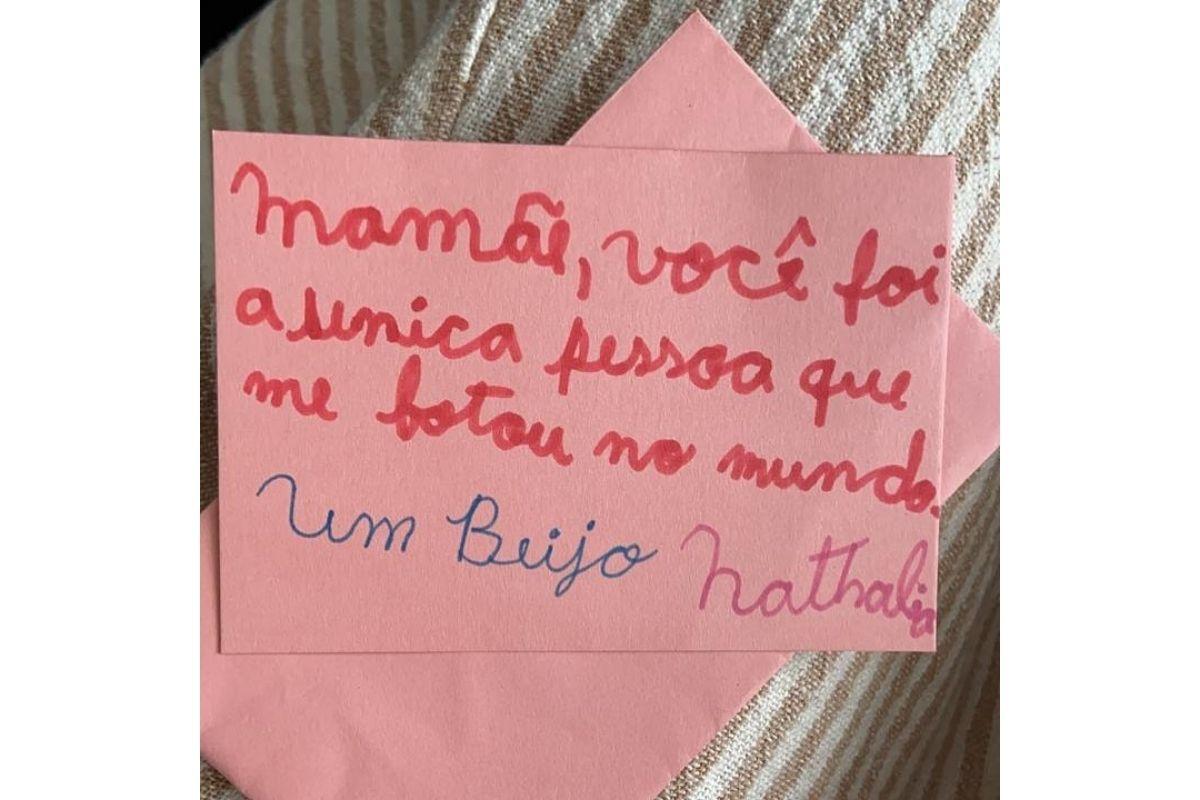 Mamãe, você foi
a unica pessoa que
me botou no mundo.
Um Beijo Nathalia